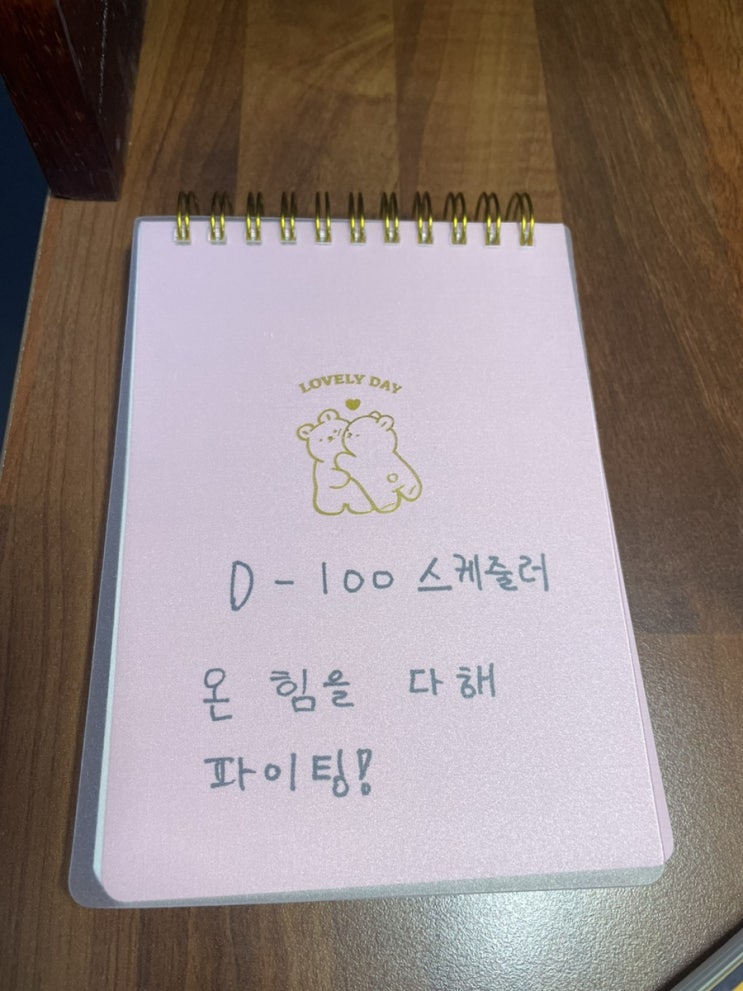 LOVELY DAY
D-100 스케줄러
온 힘을 다해
파이팅!